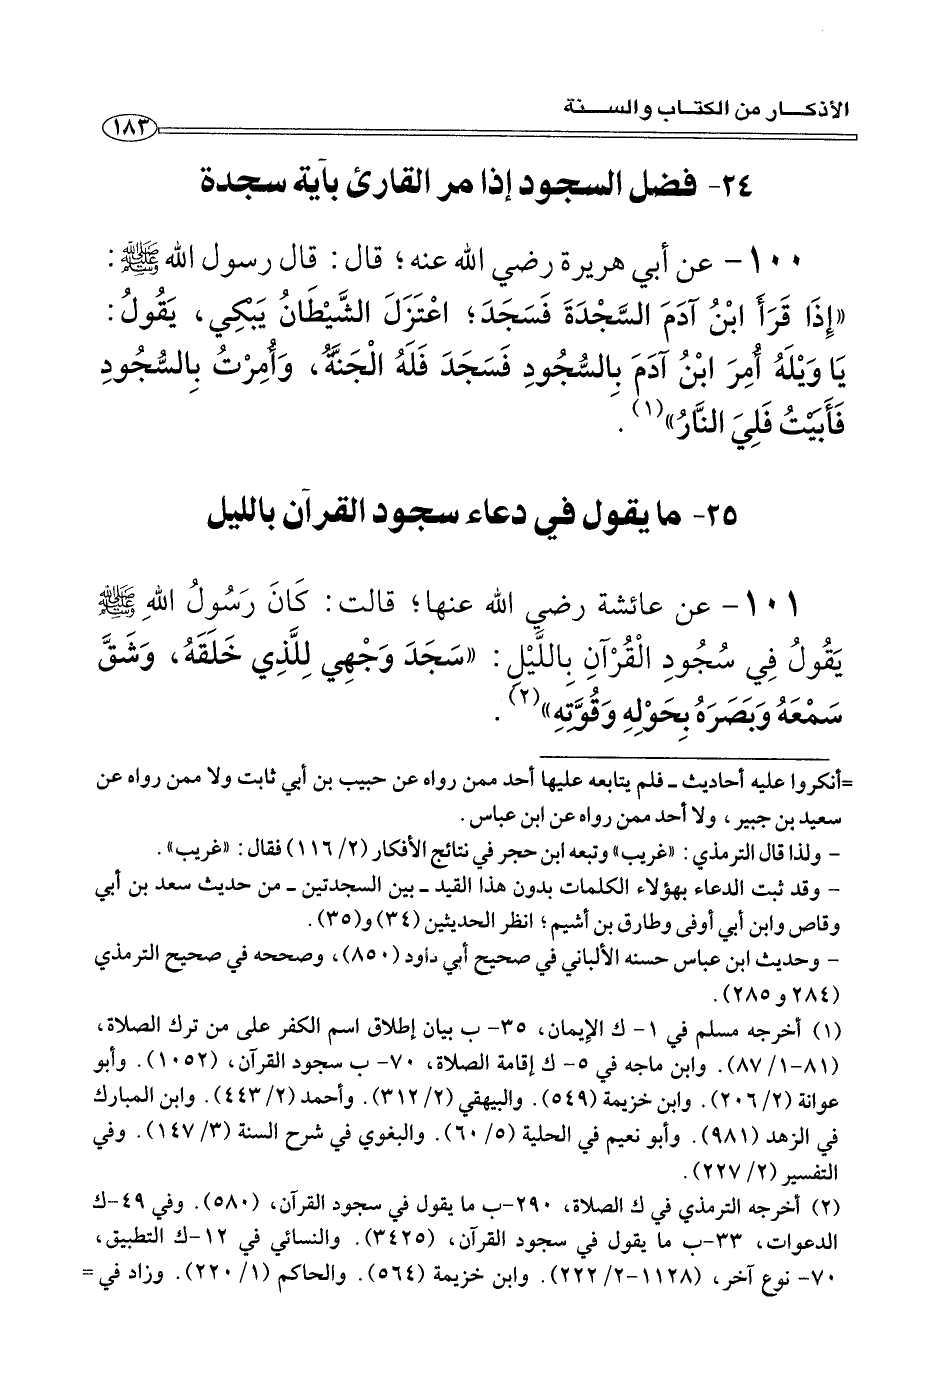 الأذكـــار من الكتاب والســـنة
١٨٣
٢٤- فضل السجود إذا مر القارئ بآية سجدة
١٠٠ - عن أبي هريرة رضي الله عنه؛ قال: قال رسول الله ﷺ:
«إِذَا قَرَأَ ابْنُ آدَمَ السَّجْدَةَ فَسَجَدَ؛ اعْتَزَلَ الشَّيْطَانُ يَبْكِي، يَقُولُ:
يَا وَيْلَهُ أُمِرَ ابْنُ آدَمَ بِالسُّجُودِ فَسَجَدَ فَلَهُ الْجَنَّةُ، وَأُمِرْتُ بِالسُّجُودِ
فَأَبَيْتُ فَلِيَ النَّارُ»(١).
٢٥- ما يقول في دعاء سجود القرآن بالليل
١٠١ - عن عائشة رضي الله عنها؛ قالت: كَانَ رَسُولُ اللهِ ﷺ
يَقُولُ فِي سُجُودِ الْقُرْآنِ بِاللَّيْلِ: «سَجَدَ وَجْهِي لِلَّذِي خَلَقَهُ، وَشَقَّ
سَمْعَهُ وَبَصَرَهُ بِحَوْلِهِ وَقُوَّتِهِ»(٢).
=أنكروا عليه أحاديث ـ فلم يتابعه عليها أحد ممن رواه عن حبيب بن أبي ثابت ولا ممن رواه عن
سعيد بن جبير، ولا أحد ممن رواه عن ابن عباس.
- ولذا قال الترمذي: «غريب» وتبعه ابن حجر في نتائج الأفكار (٢/ ١١٦) فقال: «غريب».
- وقد ثبت الدعاء بهؤلاء الكلمات بدون هذا القيد ـ بين السجدتين ـ من حديث سعد بن أبي
وقاص وابن أبي أوفى وطارق بن أشيم؛ انظر الحديثين (٣٤) و(٣٥).
- وحديث ابن عباس حسنه الألباني في صحيح أبي داود (٨٥٠)، وصححه في صحيح الترمذي
(٢٨٤ و ٢٨٥).
(١) أخرجه مسلم في ١- ك الإيمان، ٣٥- ب بيان إطلاق اسم الكفر على من ترك الصلاة،
(٨١-١/ ٨٧). وابن ماجه في ٥- ك إقامة الصلاة، ٧٠- ب سجود القرآن، (١٠٥٢). وأبو
عوانة (٢/ ٢٠٦). وابن خزيمة (٥٤٩). والبيهقي (٢/ ٣١٢). وأحمد (٢/ ٤٤٣). وابن المبارك
في الزهد (٩٨١). وأبو نعيم في الحلية (٥/ ٦٠). والبغوي في شرح السنة (٣/ ١٤٧). وفي
التفسير (٢/ ٢٢٧).
(٢) أخرجه الترمذي في ك الصلاة، ٢٩٠-ب ما يقول في سجود القرآن، (٥٨٠). وفي ٤٩-ك
الدعوات، ٣٣-ب ما يقول في سجود القرآن، (٣٤٢٥). والنسائي في ١٢-ك التطبيق،
٧٠- نوع آخر، (١١٢٨-٢/ ٢٢٢). وابن خزيمة (٥٦٤). والحاكم (١/ ٢٢٠). وزاد في =